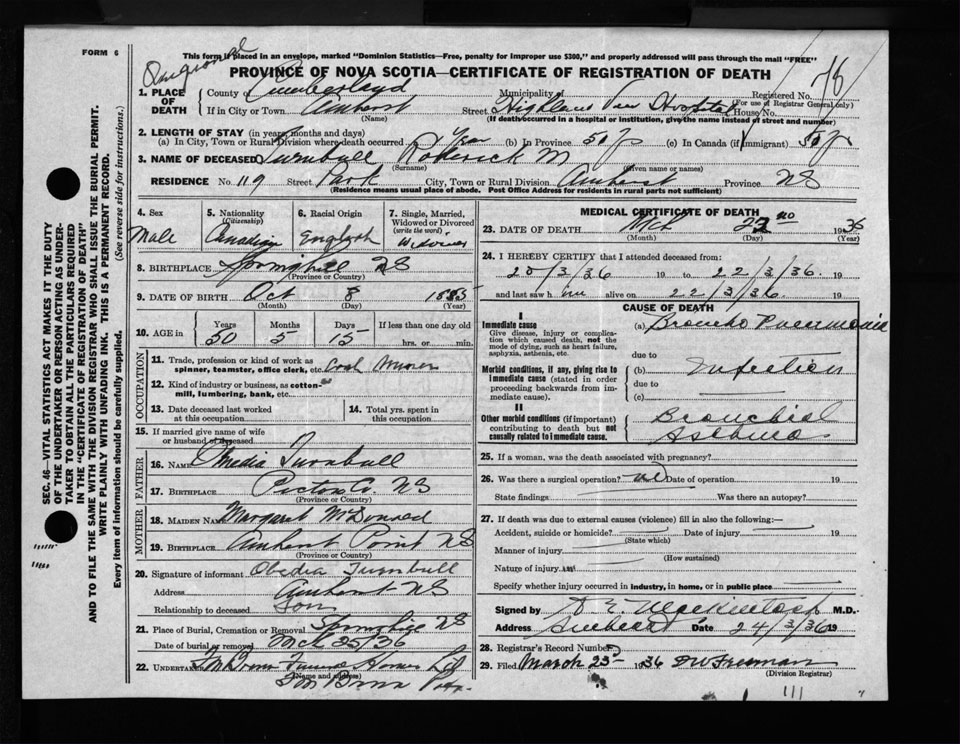 FORM 6
This form if placed in an envelope, marked "Dominion Statistics—Free, penalty for improper use $300," and properly addressed will pass through the mail "FREE"
PROVINCE OF NOVA SCOTIA—CERTIFICATE OF REGISTRATION OF DEATH
1. PLACE OF DEATH County of Cumberland Municipality of Registered No. 78
(For use of Registrar General only)
If in City or Town Amherst Street Highland View Hospital House No.
(Name) (If death occurred in a hospital or institution, give the name instead of street and number)
2. LENGTH OF STAY (in years, months and days)
(a) In City, Town or Rural Division where death occurred (b) In Province 50 (c) In Canada (if immigrant) 50
3. NAME OF DECEASED Turnbull Roderick M
(Surname) (Given name or names)
RESIDENCE No. 119 Street Park City, Town or Rural Division Amherst Province NS
(Residence means usual place of abode. Post Office Address for residents in rural parts not sufficient)
SEC. 46—VITAL STATISTICS ACT MAKES IT THE DUTY
OF THE UNDERTAKER OR PERSON ACTING AS UNDER-
TAKER TO OBTAIN ALL THE PARTICULARS REQUIRED
IN THE "CERTIFICATE OF REGISTRATION OF DEATH"
AND TO FILE THE SAME WITH THE DIVISION REGISTRAR WHO SHALL ISSUE THE BURIAL PERMIT.
WRITE PLAINLY WITH UNFADING INK. THIS IS A PERMANENT RECORD.
Every item of information should be carefully supplied. (See reverse side for instructions.)
4. Sex Male
5. Nationality (Citizenship) Canadian
6. Racial Origin English
7. Single, Married, Widowed or Divorced (write the word) Widower
8. BIRTHPLACE Springhill NS
(Province or Country)
9. DATE OF BIRTH Oct 8 1885
(Month) (Day) (Year)
10. AGE in Years 50 Months 5 Days 15 If less than one day old hrs. or min.
OCCUPATION
11. Trade, profession or kind of work as spinner, teamster, office clerk, etc. Coal Miner
12. Kind of industry or business, as cotton-mill, lumbering, bank, etc.
13. Date deceased last worked at this occupation
14. Total yrs. spent in this occupation
15. If married give name of wife or husband of deceased
FATHER
16. NAME Turnbull
17. BIRTHPLACE Pictou Co. NS
(Province or Country)
MOTHER
18. MAIDEN NAME Margaret McDonald
19. BIRTHPLACE Amherst Point NS
(Province or Country)
20. Signature of informant Obedia Turnbull
Address Amherst NS
Relationship to deceased Son
21. Place of Burial, Cremation or Removal Springhill NS
Date of burial or removal Mch 25/36
22. UNDERTAKER Funeral Home Ltd
(Name and address)
MEDICAL CERTIFICATE OF DEATH
23. DATE OF DEATH Mch 22nd 1936
(Month) (Day) (Year)
24. I HEREBY CERTIFY that I attended deceased from:
20/3/36 19 to 22/3/36 19
and last saw him alive on 22/3/36 19
CAUSE OF DEATH
I
Immediate cause
Give disease, injury or complication which caused death, not the mode of dying, such as heart failure, asphyxia, asthenia, etc.
(a) Broncho Pneumonia
due to
Morbid conditions, if any, giving rise to immediate cause (stated in order proceeding backwards from immediate cause).
(b) Infection
due to
(c)
II
Other morbid conditions (if important) contributing to death but not causally related to immediate cause.
Bronchial
Asthma
25. If a woman, was the death associated with pregnancy?
26. Was there a surgical operation? no Date of operation 19
State findings Was there an autopsy?
27. If death was due to external causes (violence) fill in also the following:—
Accident, suicide or homicide? Date of injury 19
(State which)
Manner of injury
(How sustained)
Nature of injury
Specify whether injury occurred in industry, in home, or in public place
Signed by Mackintosh M.D.
Address Amherst Date 24/3/36 19
28. Registrar's Record Number
29. Filed March 25 1936 Freeman
(Division Registrar)